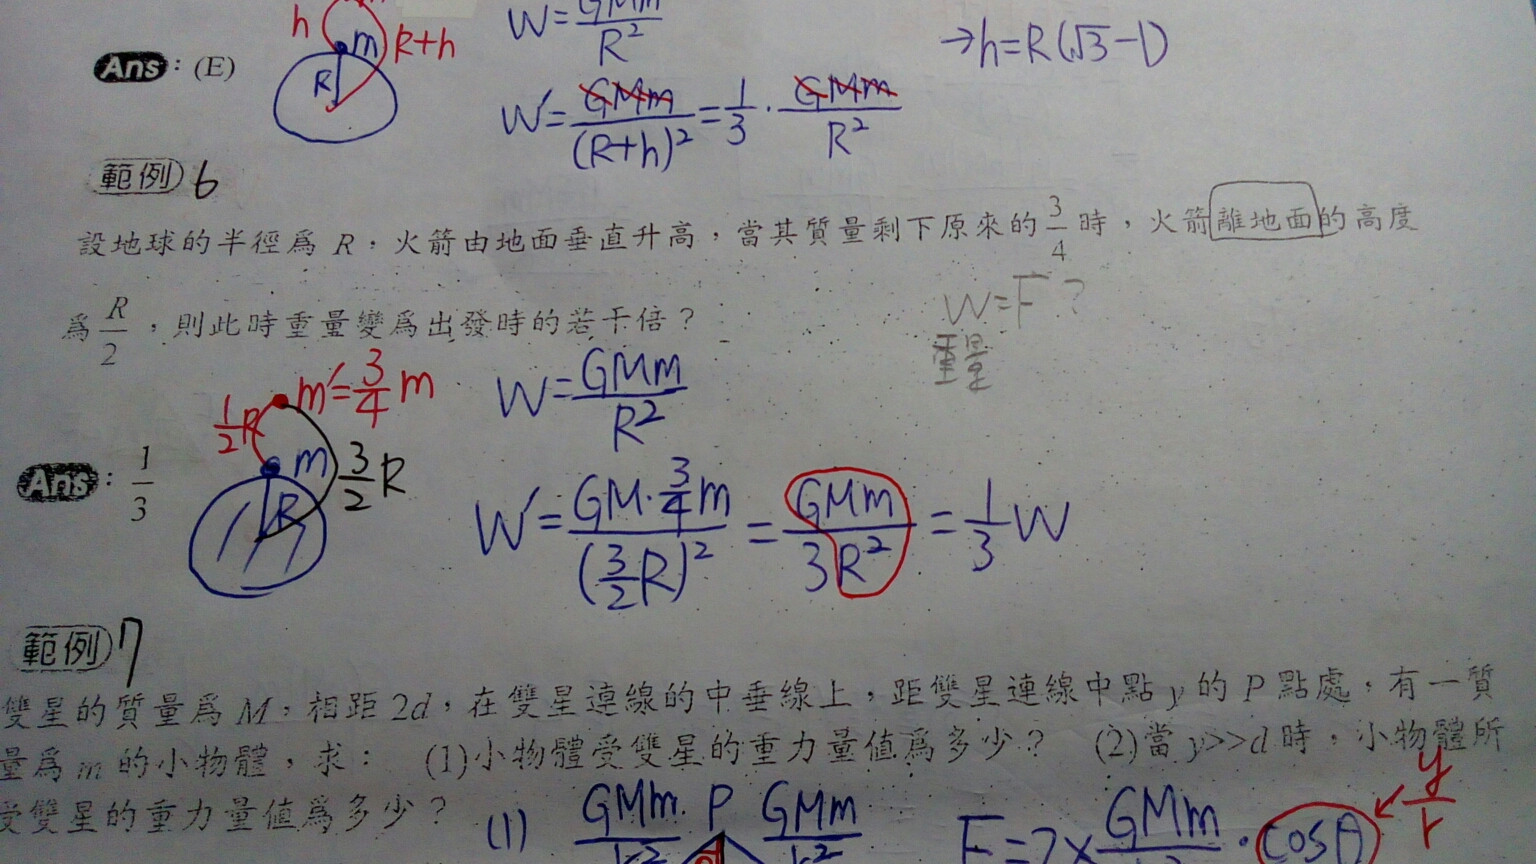 h
m
R+h
R
W=GMm/R²
→h=R(√3-1)
Ans：(E)
W'=GMm/(R+h)²=1/3·GMm/R²
範例6
設地球的半徑為 R，火箭由地面垂直升高，當其質量剩下原來的 3/4 時，火箭離地面的高度
為 R/2，則此時重量變為出發時的若干倍？
W=F？
重量
m'=3/4 m
1/2 R
m
3/2 R
R
W=GMm/R²
Ans：1/3
W'=GM·3/4m/(3/2R)²=GMm/3R²=1/3W
範例7
雙星的質量為 M，相距 2d，在雙星連線的中垂線上，距雙星連線中點 y 的 P 點處，有一質
量為 m 的小物體，求： (1)小物體受雙星的重力量值為多少？ (2)當 y>>d 時，小物體所
受雙星的重力量值為多少？
y/r
(1) GMm P GMm
F=2×GMm·cosθ